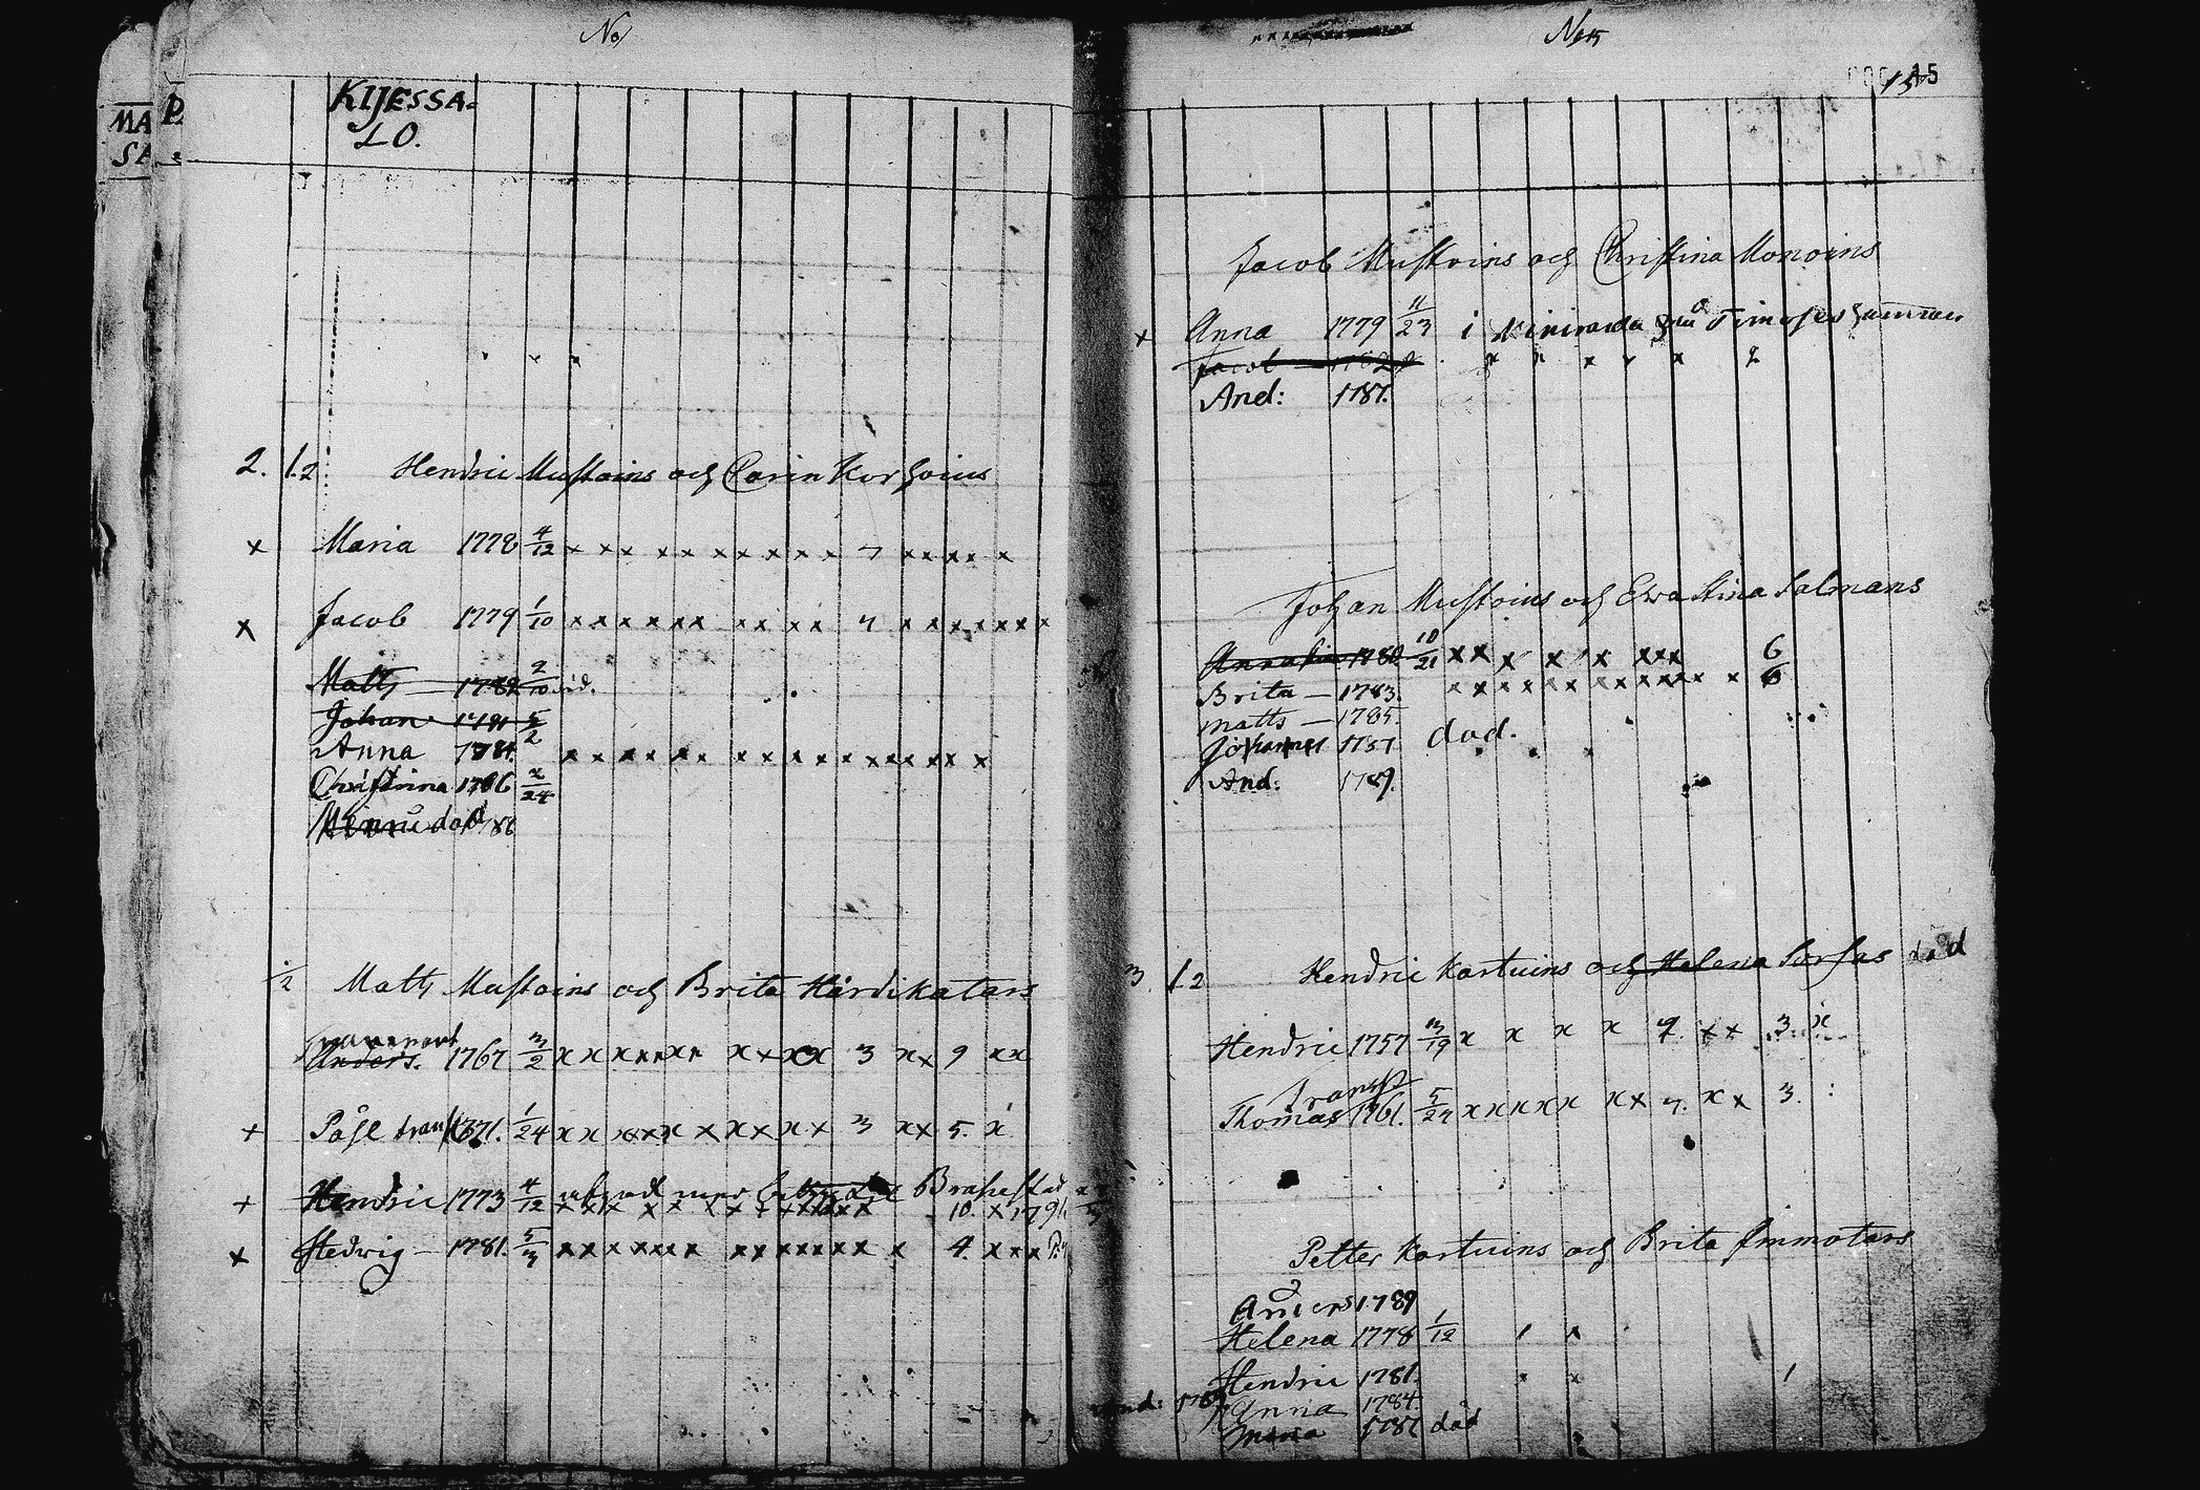 No
KIJESSA=
LO.
MA
SA
P
2. 1.2 Hendric Mustoins och Carin Korhoins
x Maria 1778 4/12 x x x x x x x x x x x 7 x x x x x
x Jacob 1779 1/10 x x x x x x x x x x 7 x x x x x x x
Matts 1782 2/10 död.
Johan 1791 5/2
Anna 1784. x x x x x x x x x x x x x x x x x
Christina 1786 2/24
död 1786
1/2 Matts Mustoins och Brita Hårdikatars
Anders. 1767 3/2 x x x x x x x x x x x 3 x x 9 x x
+ Påhl transp 1771. 1/24 x x x x x x x x x x 3 x x 5. x
+ Hendric 1773 4/12 Brahestad
x x x x x x x x x x x x 10. x 1791
x Hedvig — 1781. 5/3 x x x x x x x x x x x x x x 4. x x x
No 15
15
15
Jacob Mustoins och Christina Monoins
x Anna 1779 11/23 i
Jacob 1782 x x x x x 2
And: 1787.
Johan Mustoins och Ewa Stina Salmans
1780 10/21 x x x x x x x x 6
Brita — 1783. x x x x x x x x x x x x 6
Matts — 1785.
Johannes 1787 död.
And: 1789.
3. 1.2 Hendric Kartuins och Helena Sorsas död
Hendric 1757 13/19 x x x x 9. x x 3. x
Transp
Thomas 1761. 5/24 x x x x x x x 7. x x 3. :
Petter Kartuins och Brita Immotars
Anders 1789
Helena 1778 1/12
Hendric 1781.
Anna 1784.
Maria 1787 död